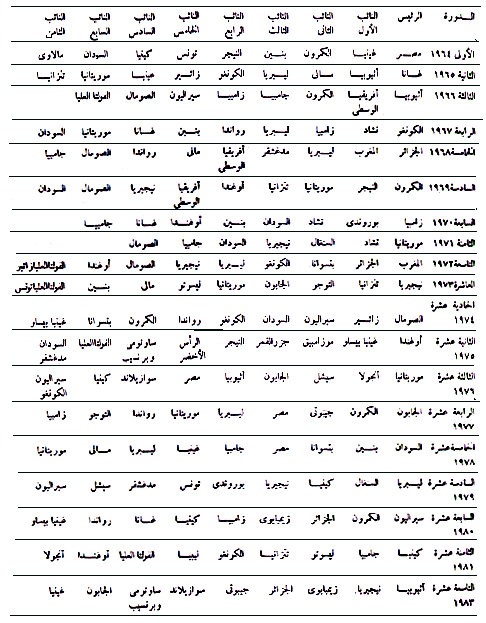 الدورة الرئيس النائب الأول النائب الثانى النائب الثالث النائب الرابع النائب الخامس النائب السادس النائب السابع النائب الثامن
الأولى ١٩٦٤ مصر غينيا الكمرون بنين النيجر تونس كينيا السودان مالاوى
الثانية ١٩٦٥ غانا أثيوبيا مالى ليبريا الكونغو زائير غينيا موريتانيا تنزانيا
الثالثة ١٩٦٦ أثيوبيا أفريقيا الوسطى الكمرون جامبيا زامبيا سيراليون الصومال الفولتا العليا
الرابعة ١٩٦٧ الكونغو تشاد زامبيا ليبريا رواندا بنين غانا موريتانيا السودان
الخامسة ١٩٦٨ الجزائر المغرب ليبريا مدغشقر أفريقيا الوسطى مالى رواندا الصومال جامبيا
السادسة ١٩٦٩ الكمرون النيجر موريتانيا تنزانيا أوغندا أفريقيا الوسطى نيجيريا الصومال السودان
السابعة ١٩٧٠ زامبيا بوروندى تشاد السودان بنين أوغندا غانا جامبيا
الثامنة ١٩٧١ موريتانيا تشاد السنغال نيجيريا السودان جامبيا الصومال
التاسعة ١٩٧٢ المغرب الجزائر بتسوانا الكونغو ليبريا نيجيريا الصومال أوغندا الفولتا العليا زائير
العاشرة ١٩٧٣ نيجيريا تنزانيا التوجو الجابون موريتانيا ليسوتو مالى بنين الفولتا العليا تونس
الحادية عشرة
١٩٧٤ الصومال زائير سيراليون السودان الكونغو رواندا الكمرون بتسوانا غينيا بيساو
الثانية عشرة ١٩٧٥ أوغندا غينيا بيساو موزامبيق جزر القمر النيجر الرأس الأخضر ساوتومى وبرنسيب الفولتا العليا السودان مدغشقر
الثالثة عشرة ١٩٧٦ موريتانيا أنجولا سيشل الجابون أثيوبيا مصر سوازيلاند كينيا سيراليون الكونغو
الرابعة عشرة ١٩٧٧ الجابون الكمرون جيبوتى مصر ليبريا موريتانيا رواندا التوجو زامبيا
الخامسة عشرة ١٩٧٨ السودان بنين بتسوانا مصر جامبيا غينيا ليبريا مالى موريتانيا
السادسة عشرة ١٩٧٩ ليبريا السنغال كينيا نيجيريا بوروندى تونس مدغشقر سيشل سيراليون
السابعة عشرة ١٩٨٠ سيراليون الكمرون الجزائر زيمبابوى زامبيا كينيا غانا رواندا غينيا بيساو
الثامنة عشرة ١٩٨١ كينيا جامبيا ليسوتو تنزانيا الكونغو ليبيا الفولتا العليا أوغندا أنجولا
التاسعة عشرة ١٩٨٣ أثيوبيا نيجيريا زيمبابوى الجزائر جيبوتى سوازيلاند ساوتومى وبرنسيب الجابون غينيا